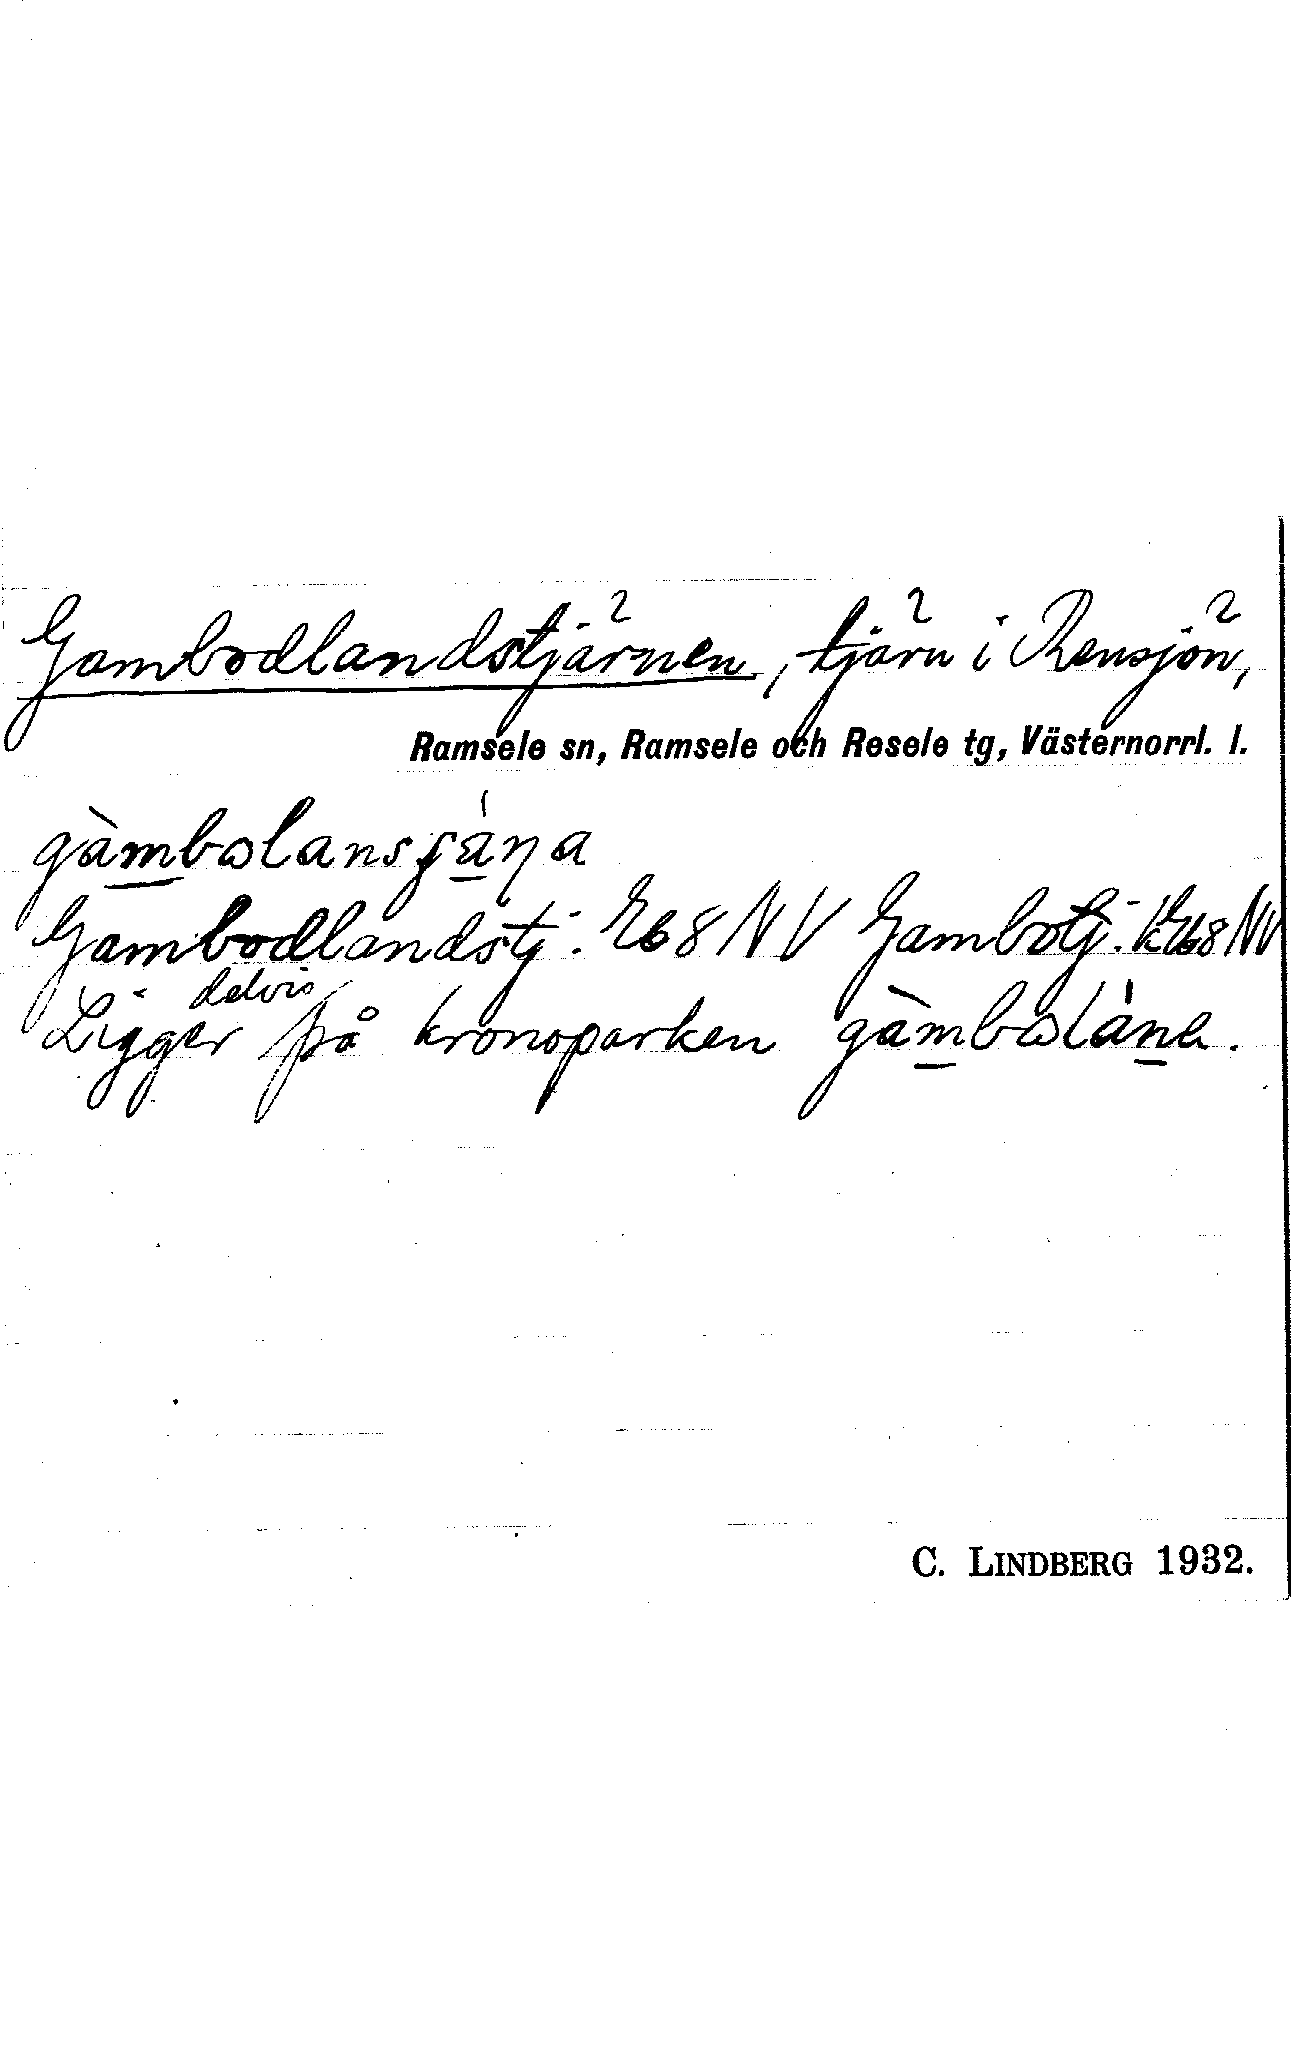 Gambodlandstjärnen, tjärn i Rensjön,
Ramsele sn, Ramsele och Resele tg, Västernorrl. l.
gàmbωlansʃáŋa
Gambodlandstj. E68NV Gambotj. K768NV
delvis
Ligger på kronoparken gàmbωlána.
C. LINDBERG 1932.